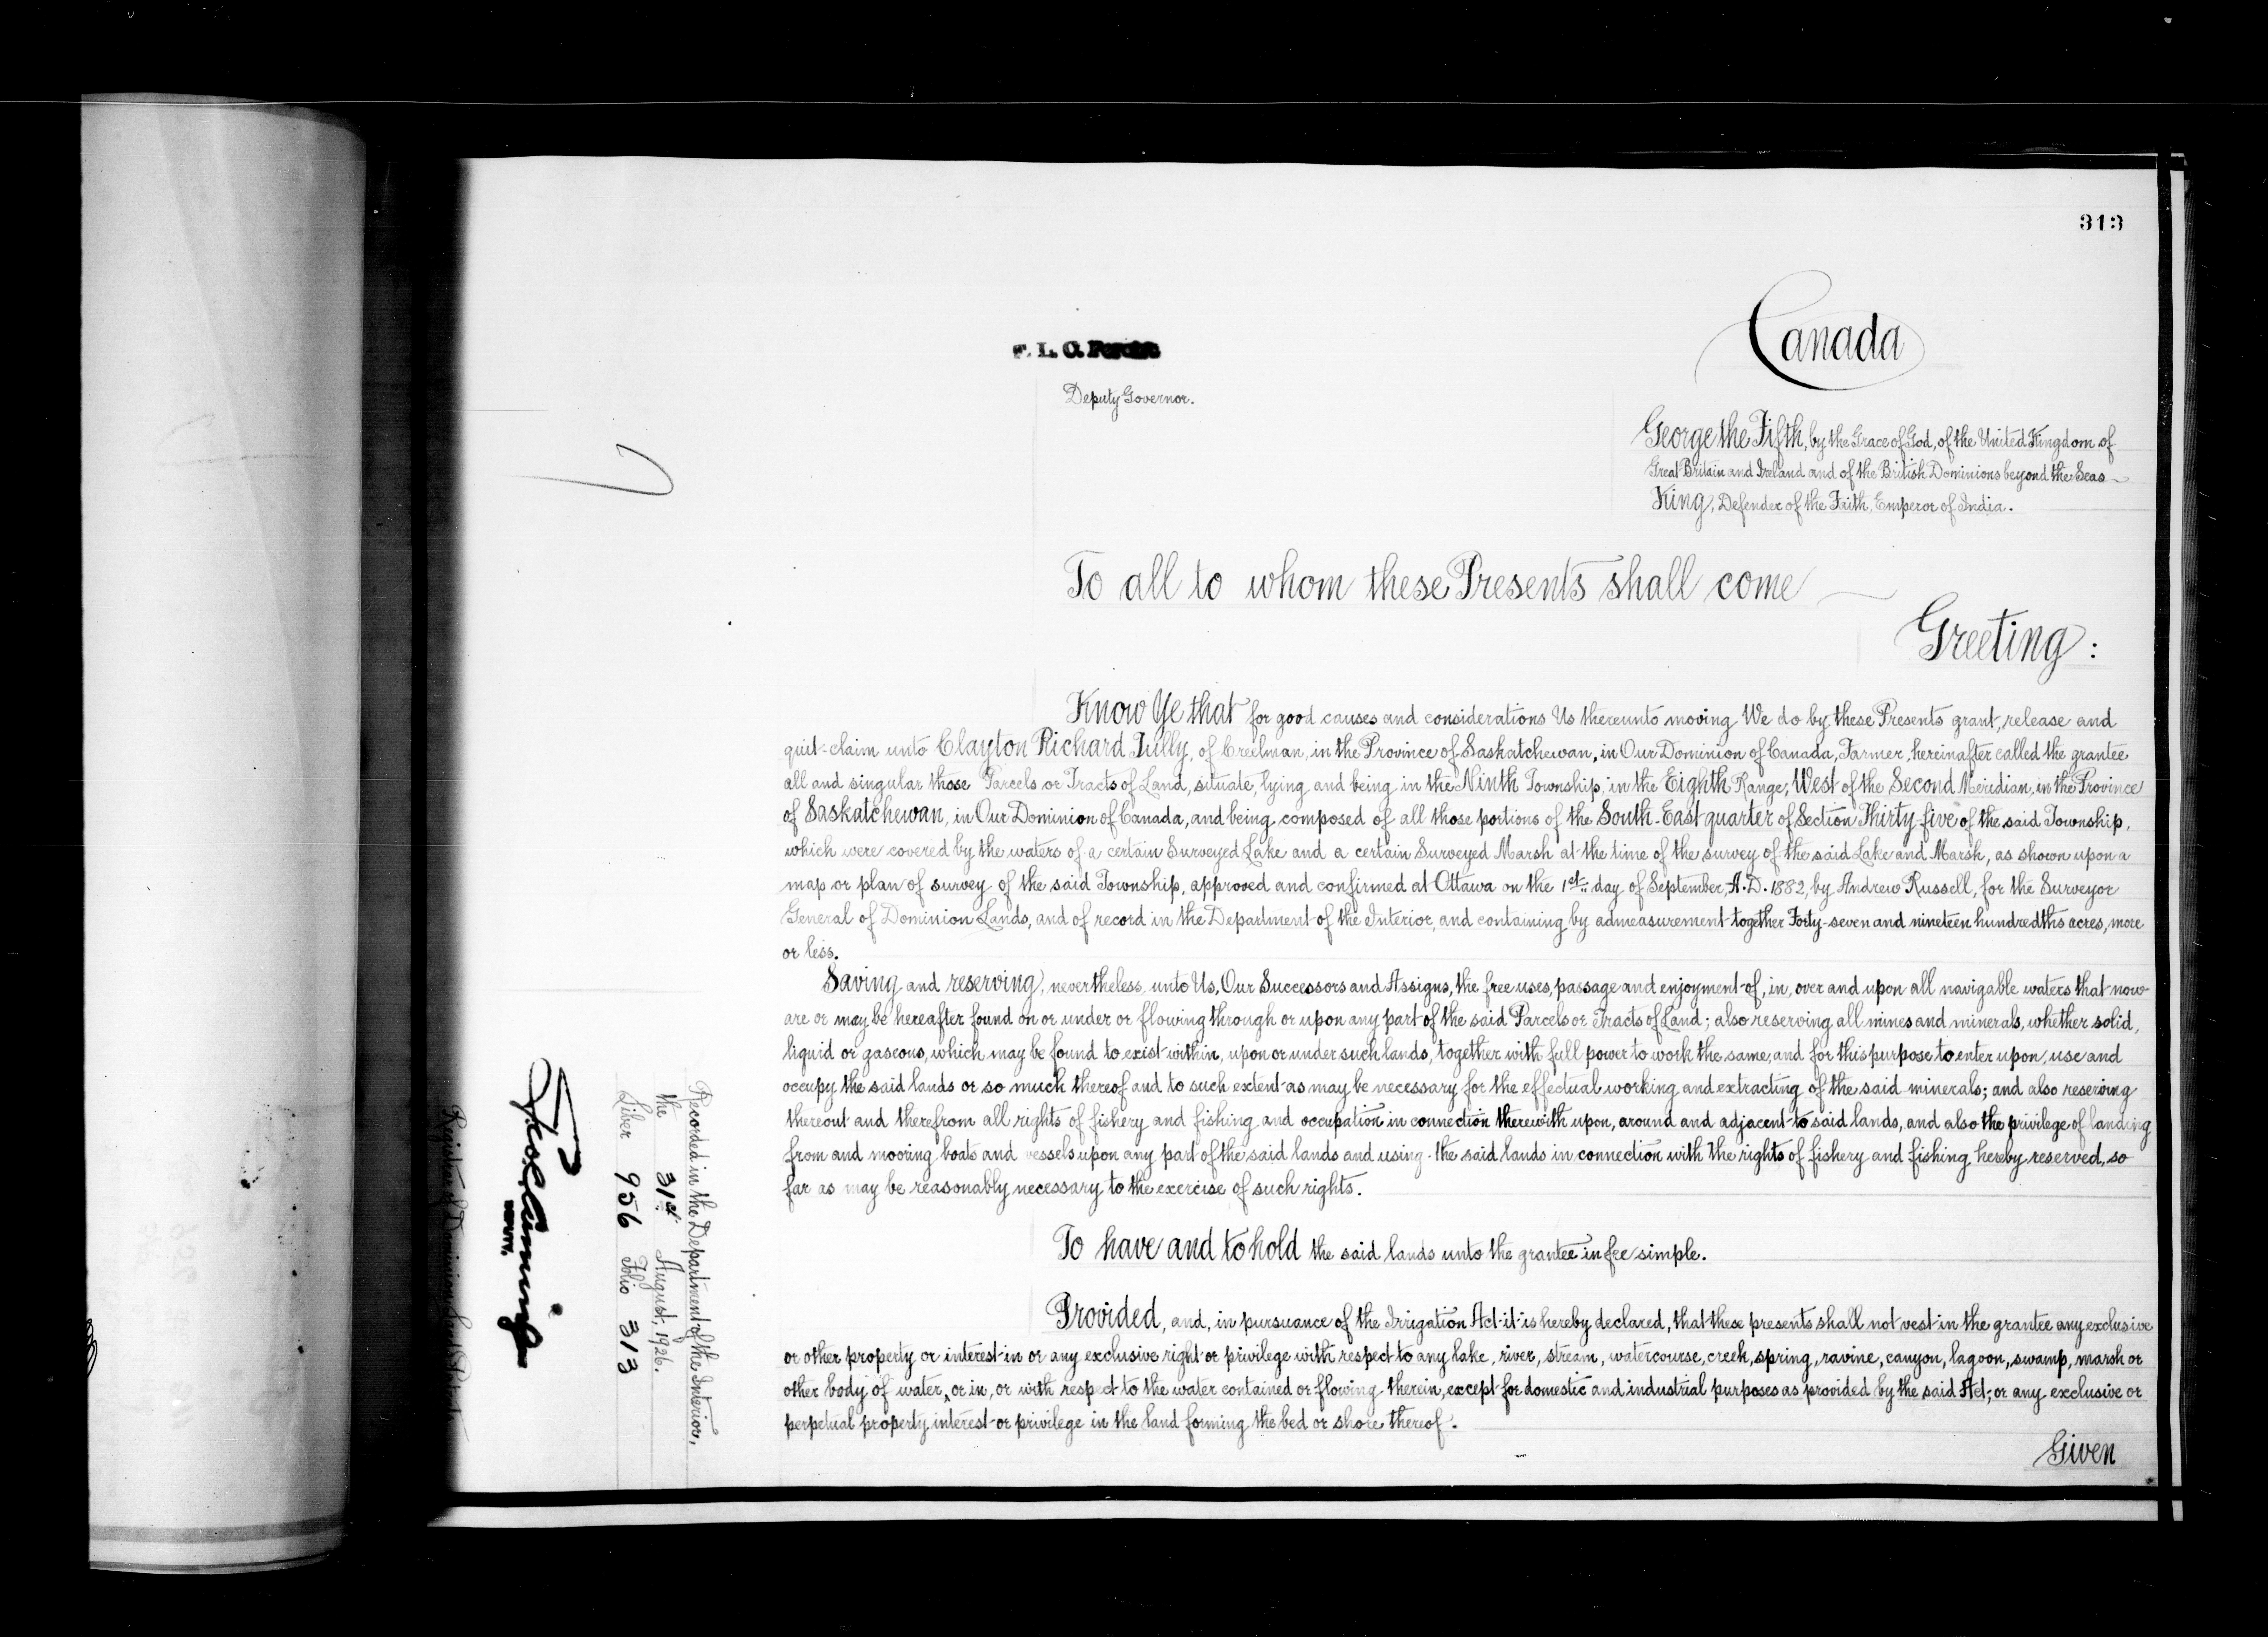 313
Canada
F. L. C.
Deputy Governor.
George the Fifth, by the Grace of God, of the United Kingdom of
Great Britain and Ireland and of the British Dominions beyond the Seas
King, Defender of the Faith, Emperor of India.
To all to whom these Presents shall come
Greeting:
Know Ye that for good causes and considerations Us thereunto moving We do by these Presents grant, release and
quit-claim unto Clayton Richard Tully, of Creelman, in the Province of Saskatchewan, in Our Dominion of Canada, Farmer, hereinafter called the grantee
all and singular those Parcels or Tracts of Land, situate, lying and being in the Ninth Township, in the Eighth Range, West of the Second Meridian, in the Province
of Saskatchewan, in Our Dominion of Canada, and being composed of all those portions of the South-East quarter of Section Thirty-five of the said Township,
which were covered by the waters of a certain Surveyed Lake and a certain Surveyed Marsh at the time of the survey of the said Lake and Marsh, as shown upon a
map or plan of survey of the said Township, approved and confirmed at Ottawa on the 1st. day of September, A.D. 1882, by Andrew Russell, for the Surveyor
General of Dominion Lands, and of record in the Department of the Interior, and containing by admeasurement together Forty-seven and nineteen hundredths acres, more
or less.
Saving and reserving, nevertheless, unto Us, Our Successors and Assigns, the free uses, passage and enjoyment of, in, over and upon all navigable waters that now
are or may be hereafter found on or under or flowing through or upon any part of the said Parcels or Tracts of Land; also reserving all mines and minerals, whether solid,
liquid or gaseous, which may be found to exist within, upon or under such lands, together with full power to work the same, and for this purpose to enter upon, use and
occupy the said lands or so much thereof and to such extent as may be necessary for the effectual working and extracting of the said minerals; and also reserving
thereout and therefrom all rights of fishery and fishing and occupation in connection therewith upon, around and adjacent to said lands, and also the privilege of landing
from and mooring boats and vessels upon any part of the said lands and using the said lands in connection with the rights of fishery and fishing hereby reserved, so
far as may be reasonably necessary to the exercise of such rights.
To have and to hold the said lands unto the grantee in fee simple.
Provided, and, in pursuance of the Irrigation Act it is hereby declared, that these presents shall not vest in the grantee any exclusive
or other property or interest in or any exclusive right or privilege with respect to any lake, river, stream, watercourse, creek, spring, ravine, canyon, lagoon, swamp, marsh or
other body of water, or in, or with respect to the water contained or flowing therein, except for domestic and industrial purposes as provided by the said Act, or any exclusive or
perpetual property, interest or privilege in the land forming the bed or shore thereof.
Given
Recorded in the Department of the Interior,
the 31st August, 1926.
Liber 956 Folio 313
DEPUTY.
Registrar of Dominion Lands Patents.